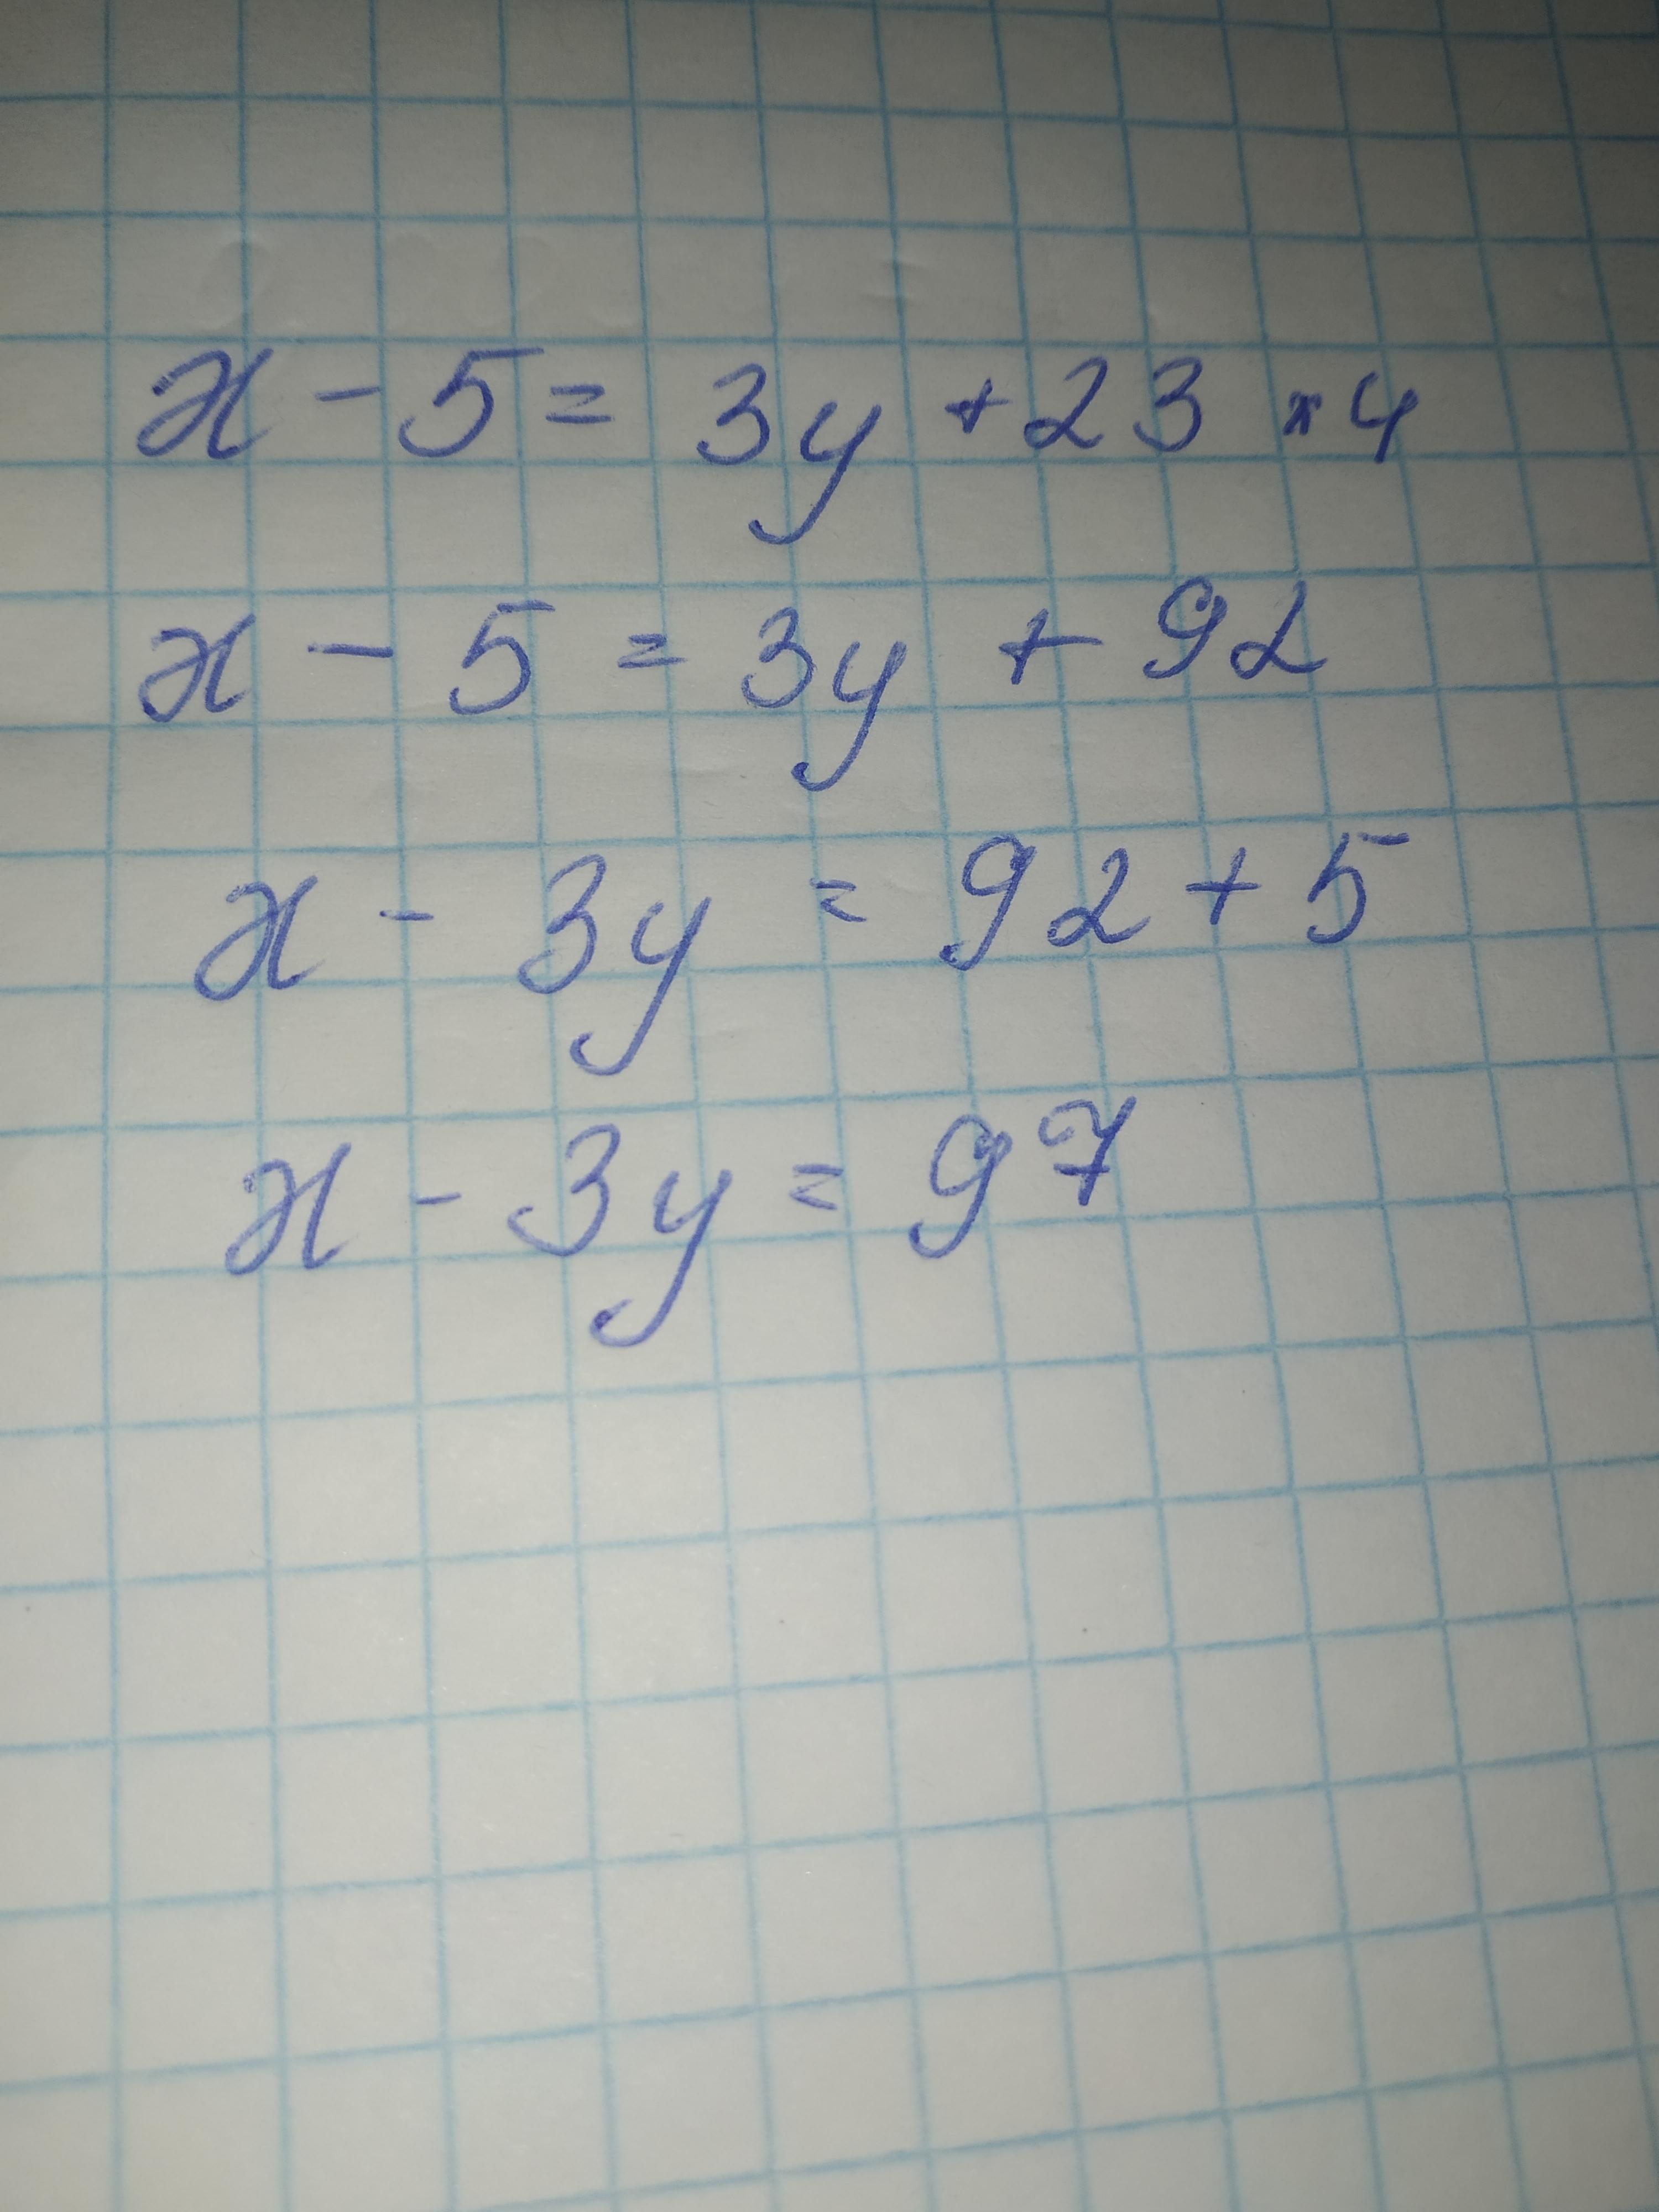 x - 5 = 3y + 23 × 4
x - 5 = 3y + 92
x - 3y = 92 + 5
x - 3y = 97